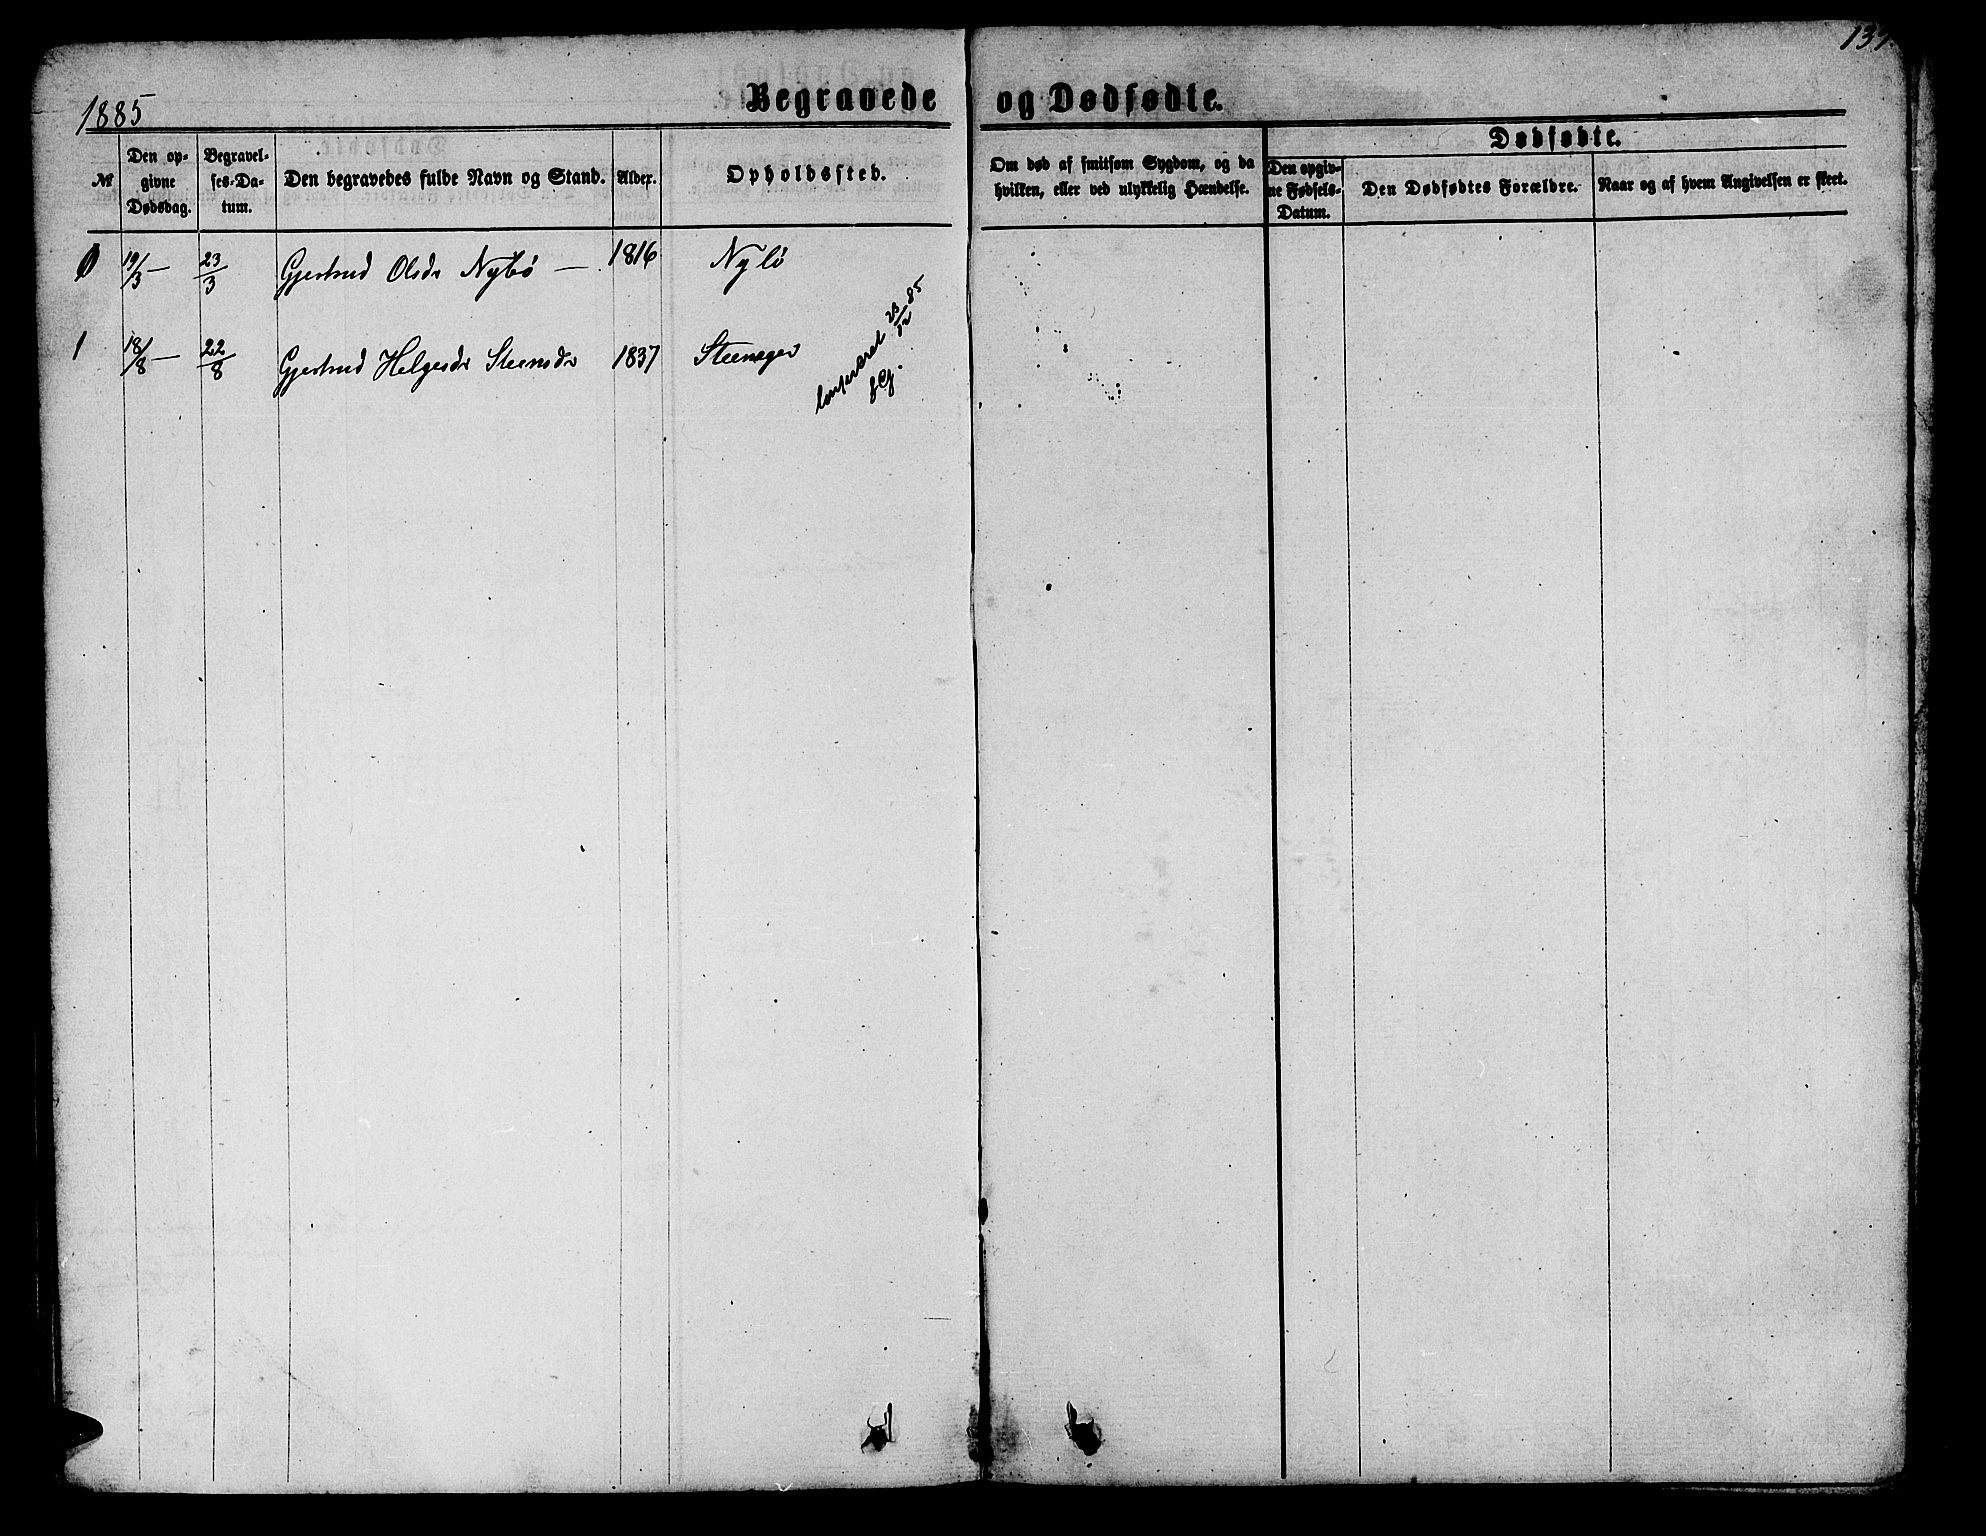 1885
Begravede og Dødfødte.
№
Den opgivne Dødsdag.
Begravelses-Datum.
Den begravedes fulde Navn og Stand.
Alder.
Opholdssted.
Om død af smitsom Sygdom, og da hvilken, eller ved ulykkelig Hændelse.
Dødfødte.
Den opgivne Fødsels-Datum.
Den Dødfødtes Forældre.
Naar og af hvem Angivelsen er skeet.
19/3 — 23/3 Gjertrud Olsdr Nybø — 1816 Nybø
1 18/8 — 22/8 Gjertrud Helgesdr Steensdr 1837 Steensager
confereret 23/12 85